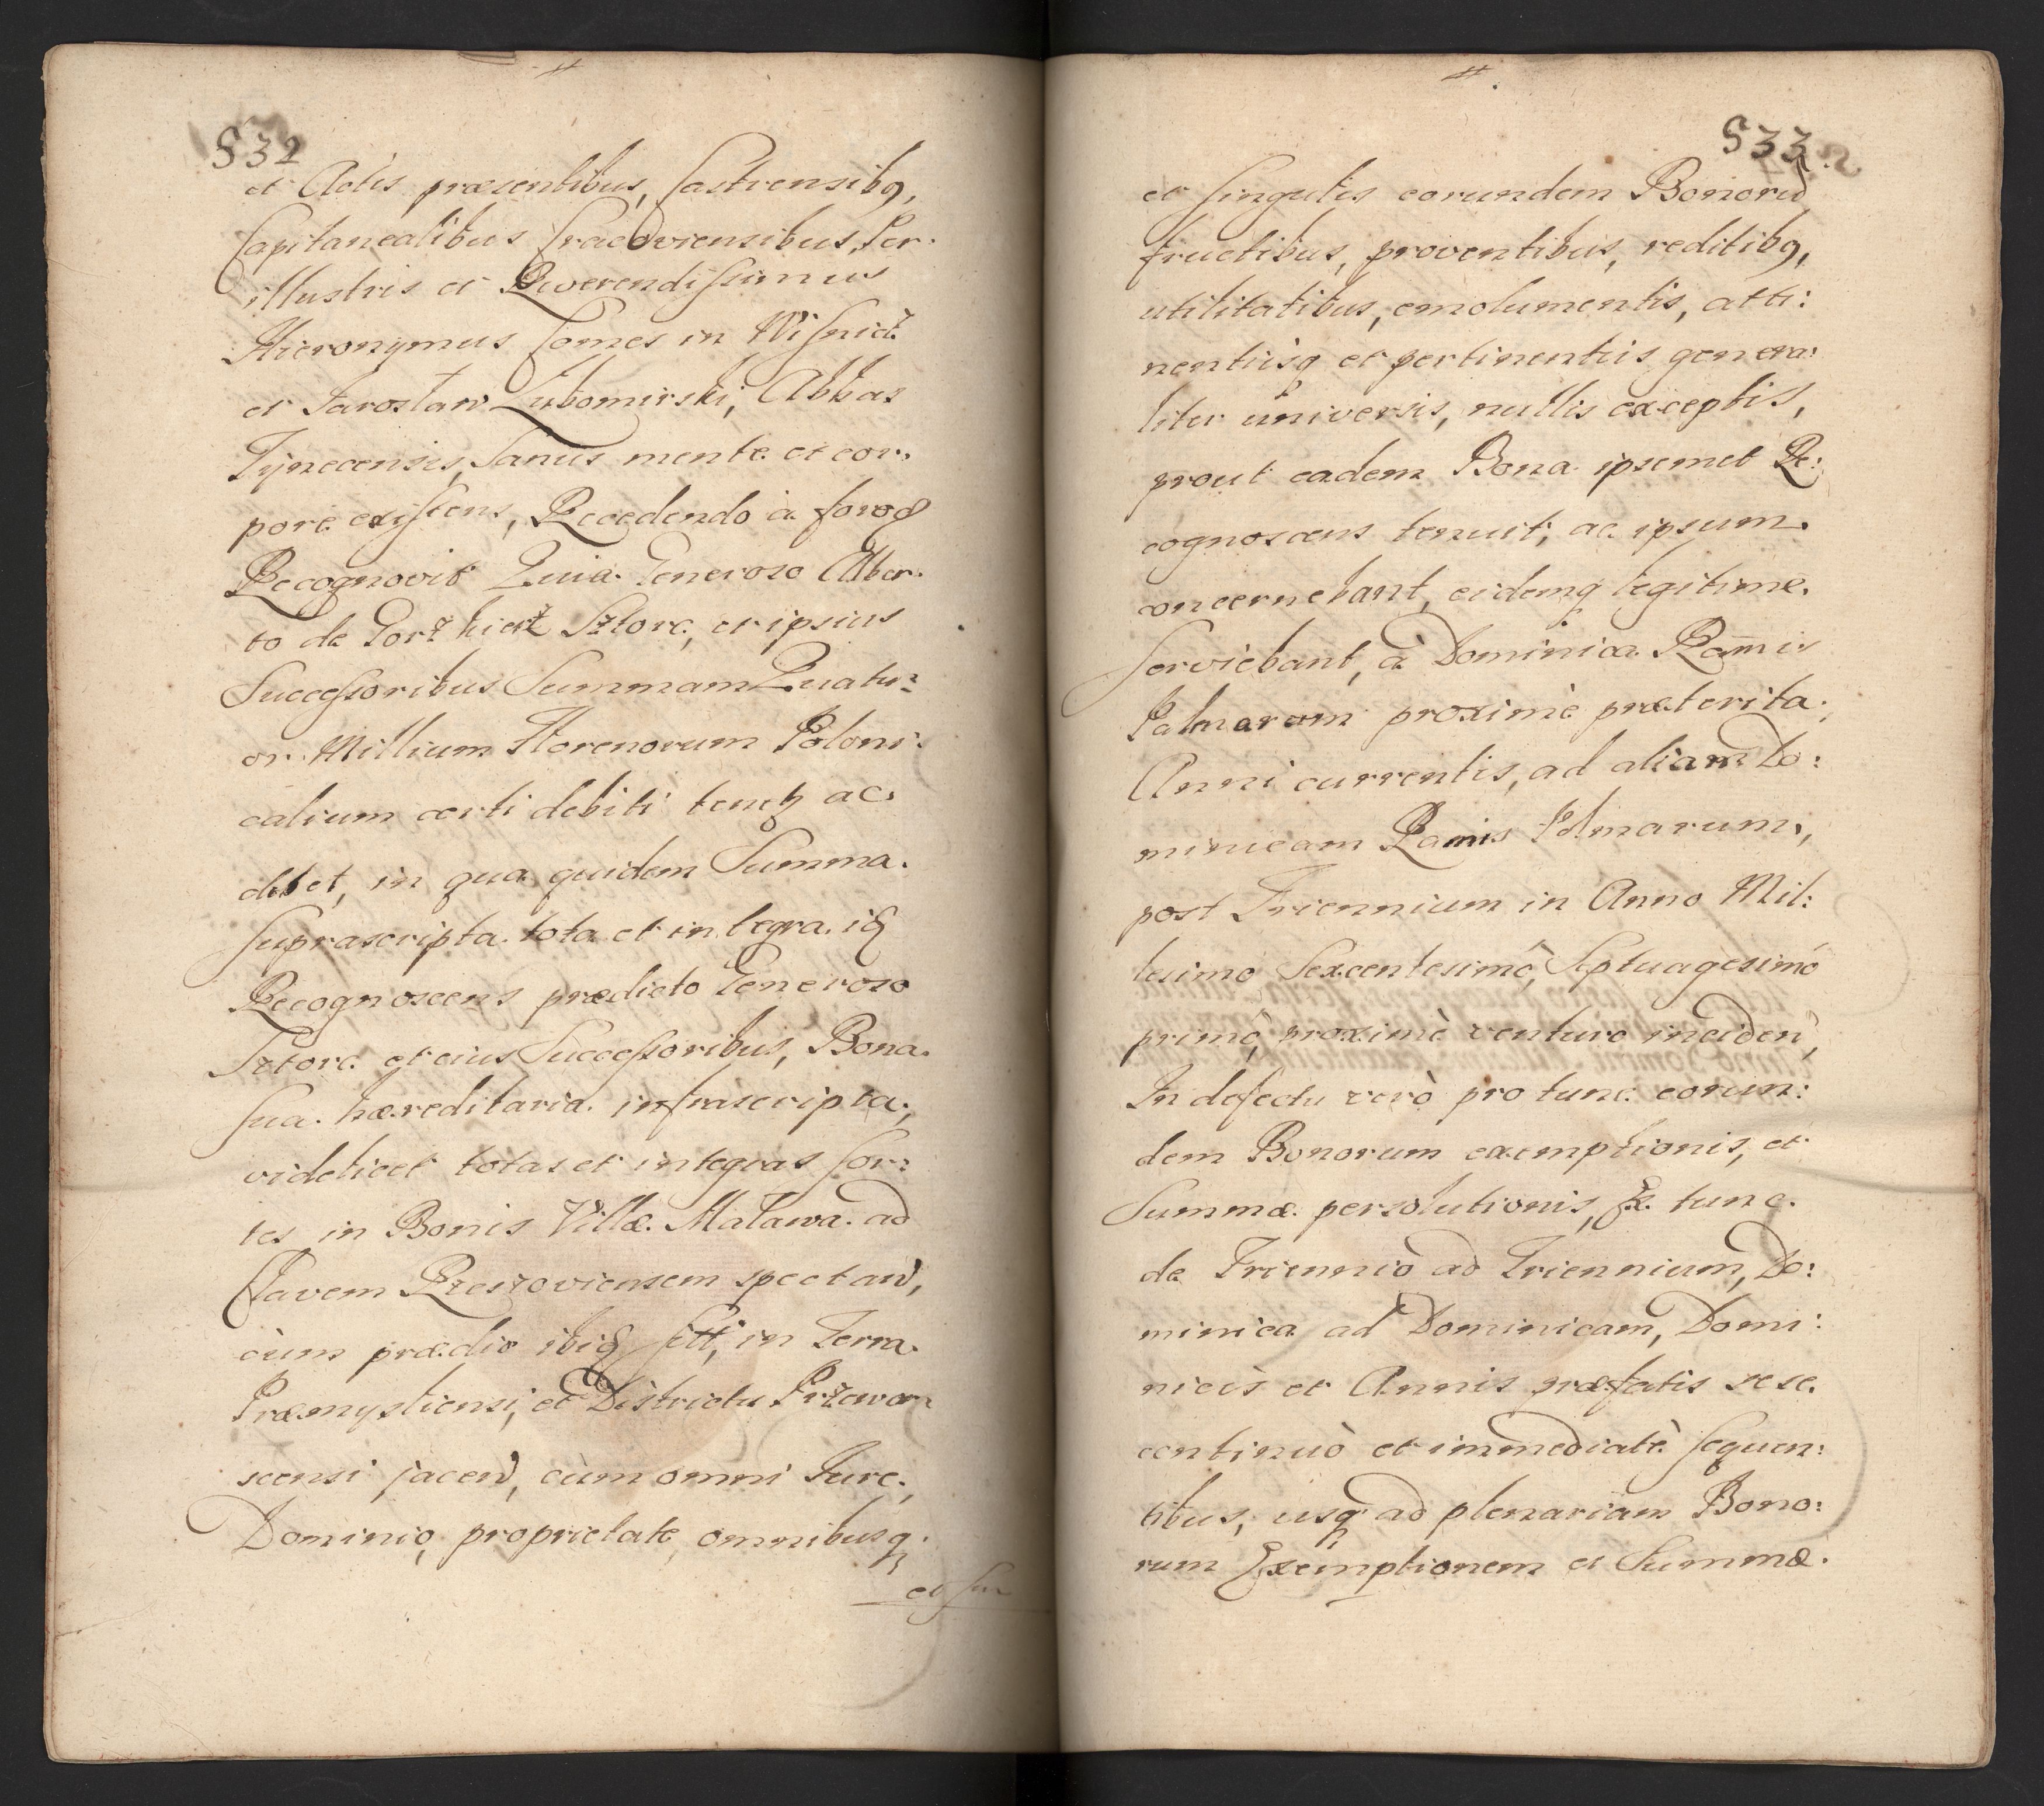 532
et Actis præsentibus, Castrensibq,
Capitanealibus Cracoviensibus, Per.
illustris et Reverendissimus
Hieronymus Comes in Wisnicz
et Jarosław Lubomirski, Abbas
Tynecensis, Sanus mente et cor,
pore existens, Recedendo à foro &
Recognovit Quia Generoso Alber.
to de Gorz
Successoribus Summam Quatu:
or Millium Florenorum Poloni.
calium certi debiti tenetz ac
debet, in qua quidem Summa
suprascripta tota et integra
Recognoscens prædicto Generoso
et eius Successoribus, Bona
sua hæreditaria infrascripta,
videlicet totas et integras Sor:
tes in Bonis Villæ Malawa ad
Clavem Rzeszoviensem spectan,
cùm prædio sitt, in Terra
Præmysliensi, et Districtu Przewor
scensi jacen, cùm omni Jure,
Dominio, proprietate, omnibusq
et sin
533
et singulis eorundem Bonorũ
fructibus, proventibus, reditibq,
utilitatibus, emolumentis, atti:
nentiisq et pertinentiis genera:
liter universis, nullis exceptis,
prout eadem Bona ipsemet Re:
cognoscens tenuit, ac ipsum
concernebant, eidemq legitime
serviebant, à Dominica Ramis
Palmarum proximè præterita,
Anni currentis, ad aliam Do:
minicam Ramis Palmarum,
post Triennium in Anno Mil:
lesimo Sexcentesimô Septuagesimô
primô, proximè venturo inciden,
In defectu verò pro tunc eorun:
dem Bonorum exemptionis, et
Summæ persolutionis, Ex tunc
de Triennio ad Triennium, Do:
minica ad Dominicam, Domi:
nicis et Annis præfatis sese
continuò et immediatè sequen:
tibus, usq ad plenariam Bono:
rum Exemptionem et Summæ